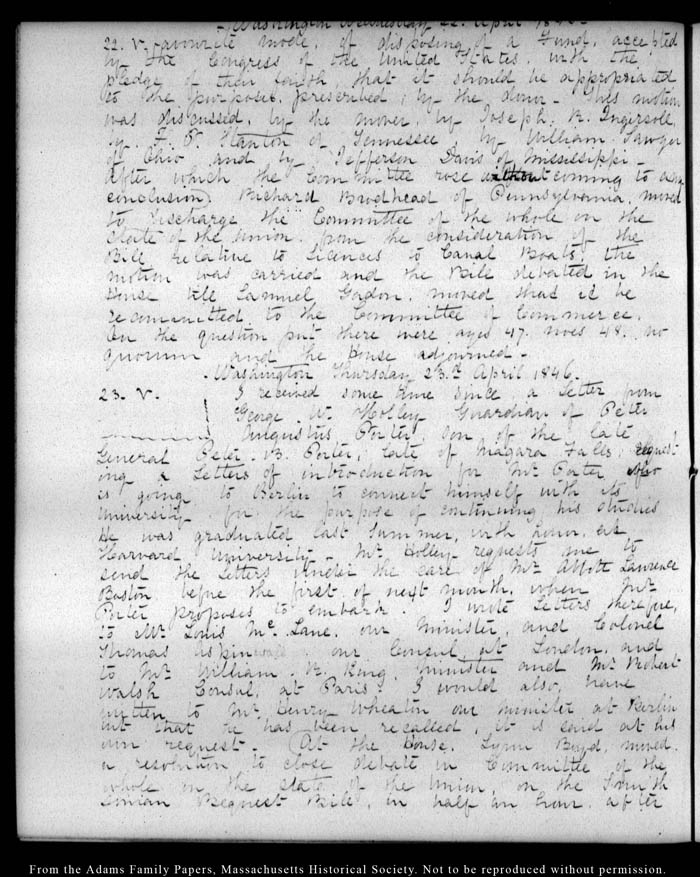 Washington Wednesday 22. April 1846.
22. V. favourite mode, of disposing of a Fund, accepted
by the Congress of the United States, with the
pledge of their faith that it should be appropriated
to the purposes, prescribed, by the donor - This motion
was discussed, by the mover, by Joseph R. Ingersoll,
by F. P. Stanton of Tennessee by William Sawyer
of Ohio and by Jefferson Davis of Mississippi -
after which the Committee rose without coming to any
conclusion. Richard Brodhead of Pennsylvania, moved
to discharge the Committee of the whole on the
state of the Union from the consideration of the
Bill relative to Licences to Canal Boats, the
motion was carried and the Bill debated in the
House till Samuel Gordon moved that it be
recommitted to the Committee of Commerce.
On the question put there were ayes 47. noes 48. no
quorum and the House adjourned -
Washington Thursday 23.d April 1846.
23. V. I received some time since a Letter from
George W. Holley Guardian of Peter
Augustus Porter, son of the late
General Peter B. Porter, late of Niagara Falls, request
ing Letters of introduction for Mr. Porter who
is going to Berlin to connect himself with its
University for the purpose of continuing his studies
He was graduated last Summer, with honor, at
Harvard University - Mr. Holley requests me to
send the Letters under the care of Mr. Abbott Lawrence
Boston before the first of next month, when Mr.
Porter proposes to embark. I wrote Letters therefore,
to Mr. Louis Mc.Lane our Minister, and Colonel
Thomas Aspinwall our Consul, at London, and
to Mr. William R. King Minister and Mr. Robert
Walsh Consul, at Paris. I would also, have
written to Mr. Henry Wheaton our minister at Berlin
but that he has been recalled, it is said at his
own request - At the House. Lynn Boyd, moved
a resolution to close debate in Committee of the
whole on the state of the Union, on the Smith
sonian Bequest Bill, in half an hour after
From the Adams Family Papers, Massachusetts Historical Society. Not to be reproduced without permission.